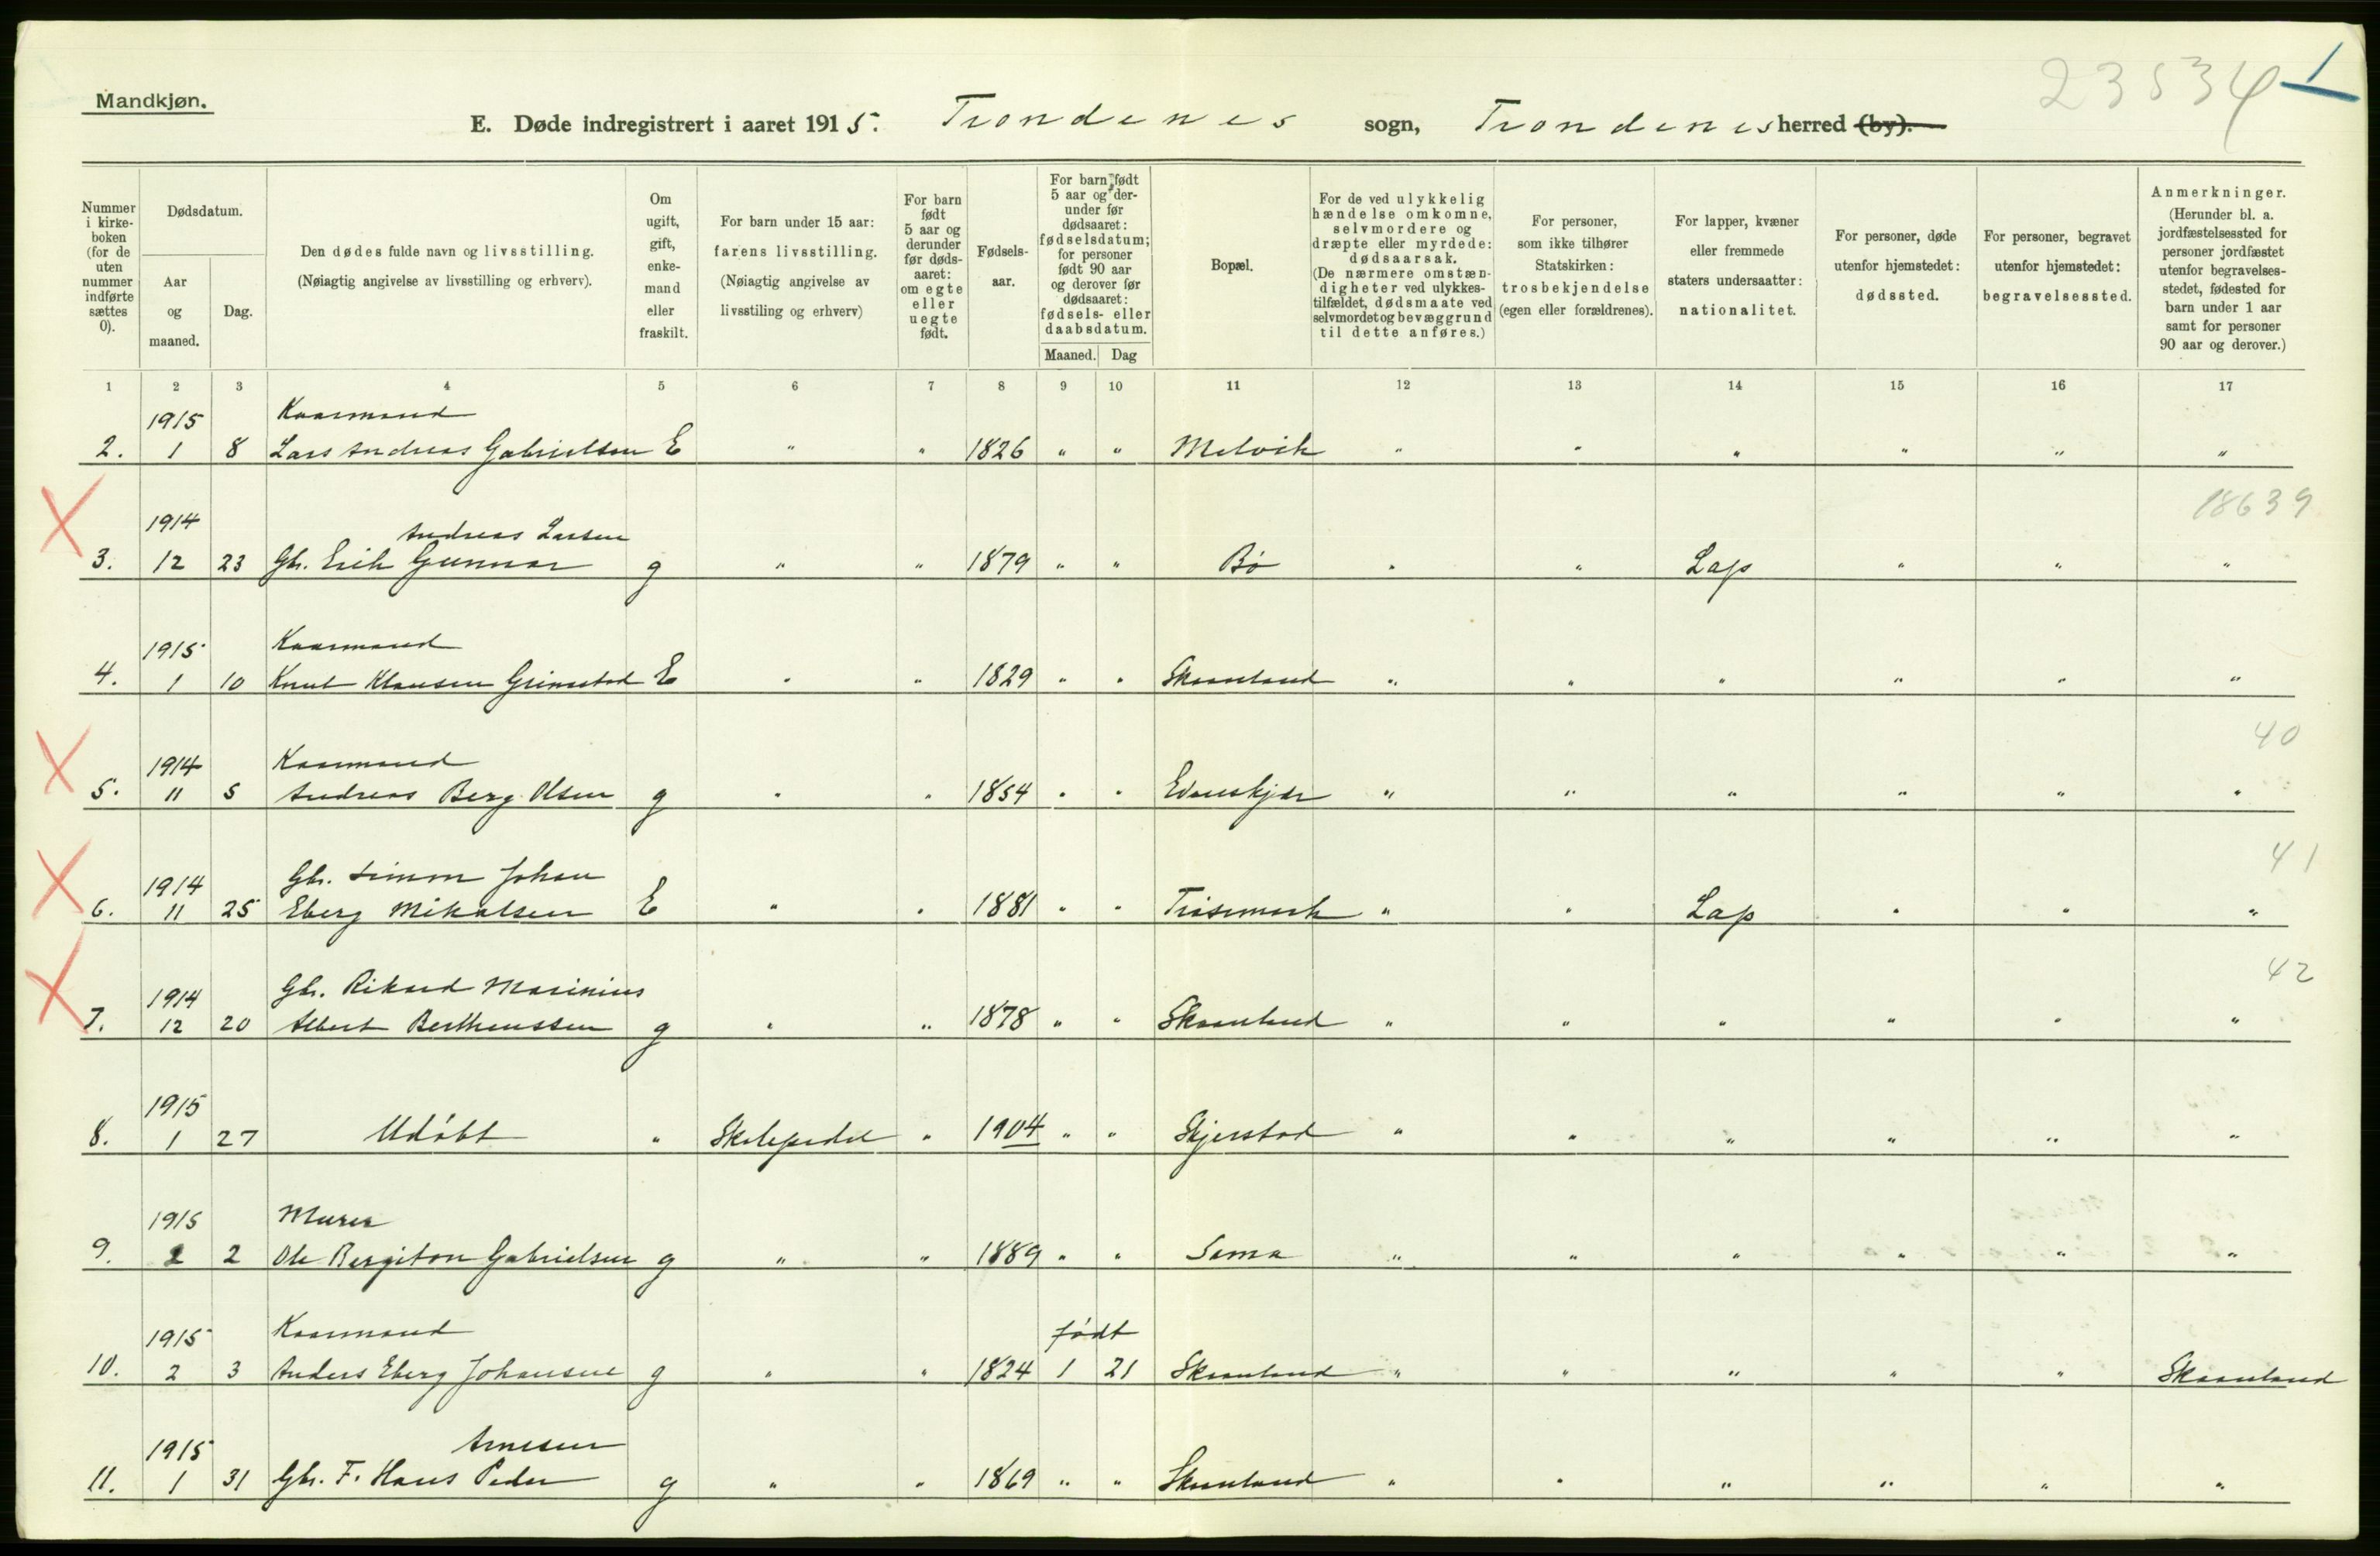 Mandkjøn.
23534 1
E. Døde indregistrert i aaret 1915. Trondenes sogn, Trondenes herred (by).
Nummer i kirke-boken (for de uten nummer indførte sættes 0).
Dødsdatum.
Aar og maaned.
Dag.
Den dødes fulde navn og livsstilling.
(Nøiagtig angivelse av livsstilling og erhverv).
Om ugift, gift, enke-mand eller fraskilt.
For barn under 15 aar: farens livsstilling.
(Nøiagtig angivelse av livsstiling og erhverv)
For barn født 5 aar og derunder før døds-aaret: om egte eller uegte født.
Fødsels-aar.
For barn født 5 aar og der-under før dødsaaret: fødselsdatum; for personer født 90 aar og derover før dødsaaret: fødsels- eller daabsdatum.
Maaned. Dag
Bopæl.
For de ved ulykkelig hændelse omkomne, selvmordere og dræpte eller myrdede: dødsaarsak.
(De nærmere omstæn-digheter ved ulykkes-tilfældet, dødsmaate ved selvmordet og bevæggrund til dette anføres.)
For personer, som ikke tilhører Statskirken: trosbekjendelse (egen eller forældrenes).
For lapper, kvæner eller fremmede staters undersaatter: nationalitet.
For personer, døde utenfor hjemstedet: dødssted.
For personer, begravet utenfor hjemstedet: begravelsessted.
Anmerkninger.
(Herunder bl. a. jordfæstelsessted for personer jordfæstet utenfor begravelses-stedet, fødested for barn under 1 aar samt for personer 90 aar og derover.)
1 2 3 4 5 6 7 8 9 10 11 12 13 14 15 16 17
1915 Kaarmand
2. 1 8 Lars Andreas Gabrielsen E " " 1826 " " Melvik " " " " " "
18639
1914 Andreas Larsen
3. 12 23 Gbr. Erik Gunnar g " " 1879 " " Bø " " Lap " " "
1915 Kaarmand
4. 1 10 Knut Klausen Grimstad E " " 1829 " " Skaanland " " " " " "
40
1914 Kaarmand
5. 11 5 Andreas Berg Olsen g " " 1854 " " Evenskjær " " " " " "
41
1914 Gbr. Simon Johan
6. 11 25 Eberg Mikalsen E " " 1881 " " Trøsemark " " Lap " " "
42
1914 Gbr. Rikard Marinius
7. 12 20 Albert Bertheussen g " " 1878 " " Skaanland " " " " " "
1915
8. 1 27 Udøbt " " 1904 " " Skjerstad " " " " " "
1915 Murer
9. 2 2 Ole Bergiton Gabrielsen g " " 1889 " " Sama " " " " " "
1915 Kaarmand født
10. 2 3 Anders Eberg Johansen g " " 1824 1 21 Skaanland " " " " " Skaanland
1915 Arnesen
11. 1 31 Gbr. F. Hans Peder g " " 1869 " " Skaanland " " " " " "